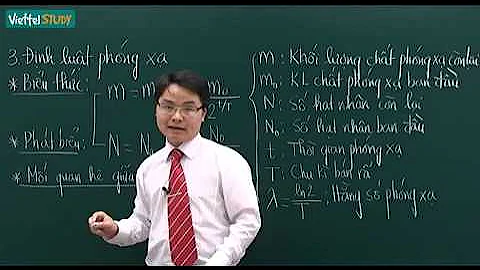 Viettel STUDY
3. Định luật phóng xạ
* Biểu thức:
m = m₀
m₀
2^t/T
* Phát biểu:
N = N₀
N₀
* Mối quan hệ giữa
m : Khối lượng chất phóng xạ còn lại
m₀ : KL chất phóng xạ ban đầu
N : Số hạt nhân còn lại
N₀ : Số hạt nhân ban đầu
t : Thời gian phóng xạ
T : Chu kì bán rã
λ = ln2/T : Hằng số phóng xạ